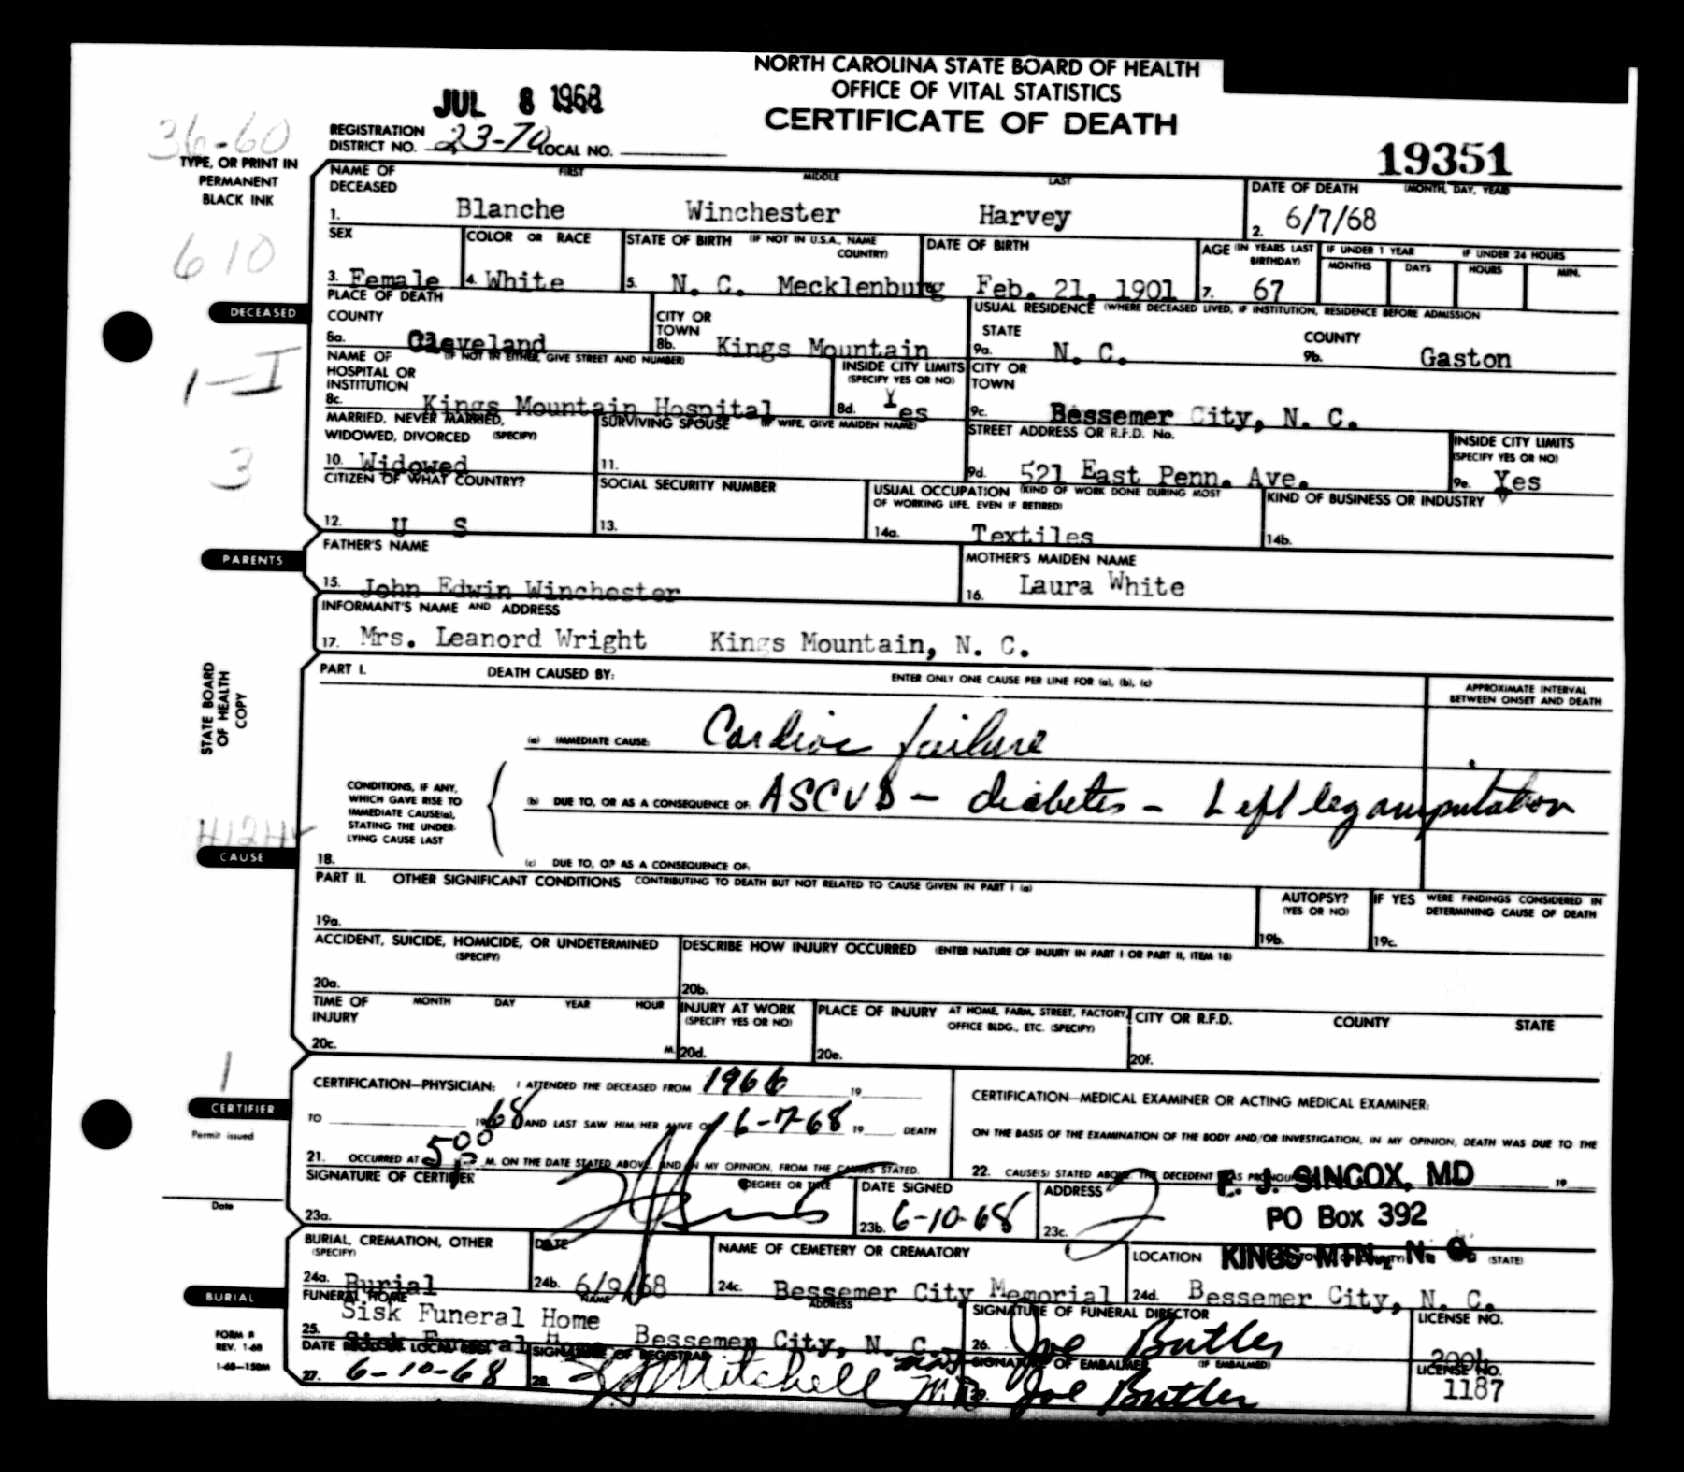 NORTH CAROLINA STATE BOARD OF HEALTH
OFFICE OF VITAL STATISTICS
CERTIFICATE OF DEATH
JUL 8 1968
36-60
REGISTRATION DISTRICT NO. 23-70 LOCAL NO.
19351
TYPE, OR PRINT IN
PERMANENT
BLACK INK
610
1-I
3
DECEASED
NAME OF DECEASED FIRST MIDDLE LAST
1. Blanche Winchester Harvey
DATE OF DEATH (MONTH, DAY, YEAR)
2. 6/7/68
SEX
3. Female
COLOR OR RACE
4. White
STATE OF BIRTH (IF NOT IN U.S.A., NAME COUNTRY)
5. N. C. Mecklenburg
DATE OF BIRTH
Feb. 21, 1901
AGE (IN YEARS LAST BIRTHDAY)
7. 67
IF UNDER 1 YEAR
MONTHS DAYS
IF UNDER 24 HOURS
HOURS MIN.
PLACE OF DEATH
COUNTY
8a. Cleveland
CITY OR TOWN
8b. Kings Mountain
USUAL RESIDENCE (WHERE DECEASED LIVED, IF INSTITUTION, RESIDENCE BEFORE ADMISSION
STATE
9a. N. C.
COUNTY
9b. Gaston
NAME OF HOSPITAL OR INSTITUTION (IF NOT IN EITHER, GIVE STREET AND NUMBER)
8c. Kings Mountain Hospital
INSIDE CITY LIMITS (SPECIFY YES OR NO)
8d. Yes
CITY OR TOWN
9c. Bessemer City, N. C.
MARRIED, NEVER MARRIED, WIDOWED, DIVORCED (SPECIFY)
10. Widowed
SURVIVING SPOUSE (IF WIFE, GIVE MAIDEN NAME)
11.
STREET ADDRESS OR R.F.D. No.
9d. 521 East Penn. Ave.
INSIDE CITY LIMITS (SPECIFY YES OR NO)
9e. Yes
CITIZEN OF WHAT COUNTRY?
12. U S
SOCIAL SECURITY NUMBER
13.
USUAL OCCUPATION (KIND OF WORK DONE DURING MOST OF WORKING LIFE, EVEN IF RETIRED)
14a. Textiles
KIND OF BUSINESS OR INDUSTRY
14b.
PARENTS
FATHER'S NAME
15. John Edwin Winchester
MOTHER'S MAIDEN NAME
16. Laura White
INFORMANT'S NAME AND ADDRESS
17. Mrs. Leanord Wright Kings Mountain, N. C.
STATE BOARD
OF HEALTH
COPY
PART I. DEATH CAUSED BY: ENTER ONLY ONE CAUSE PER LINE FOR (a), (b), (c)
APPROXIMATE INTERVAL BETWEEN ONSET AND DEATH
(a) IMMEDIATE CAUSE: Cardiac failure
CONDITIONS, IF ANY,
WHICH GAVE RISE TO
IMMEDIATE CAUSE(a),
STATING THE UNDER-
LYING CAUSE LAST
(b) DUE TO, OR AS A CONSEQUENCE OF: ASCVD - diabetes - Left leg amputation
CAUSE
18. (c) DUE TO, OR AS A CONSEQUENCE OF:
PART II. OTHER SIGNIFICANT CONDITIONS CONTRIBUTING TO DEATH BUT NOT RELATED TO CAUSE GIVEN IN PART I (a)
19a.
AUTOPSY? (YES OR NO)
19b.
IF YES WERE FINDINGS CONSIDERED IN DETERMINING CAUSE OF DEATH
19c.
ACCIDENT, SUICIDE, HOMICIDE, OR UNDETERMINED (SPECIFY)
20a.
DESCRIBE HOW INJURY OCCURRED (ENTER NATURE OF INJURY IN PART I OR PART II, ITEM 18)
20b.
TIME OF INJURY MONTH DAY YEAR HOUR
20c. M.
INJURY AT WORK (SPECIFY YES OR NO)
20d.
PLACE OF INJURY AT HOME, FARM, STREET, FACTORY, OFFICE BLDG., ETC. (SPECIFY)
20e.
CITY OR R.F.D. COUNTY STATE
20f.
1
CERTIFIER
Permit issued
Date
CERTIFICATION—PHYSICIAN: I ATTENDED THE DECEASED FROM 1966 19
TO 1968 AND LAST SAW HIM/HER ALIVE ON 6-7-68 19 DEATH
21. OCCURRED AT 5:00 P M. ON THE DATE STATED ABOVE, AND IN MY OPINION, FROM THE CAUSES STATED.
CERTIFICATION—MEDICAL EXAMINER OR ACTING MEDICAL EXAMINER:
ON THE BASIS OF THE EXAMINATION OF THE BODY AND/OR INVESTIGATION, IN MY OPINION, DEATH WAS DUE TO THE
22. CAUSE(S) STATED ABOVE. THE DECEDENT WAS PRONOUNCED 19
SIGNATURE OF CERTIFIER DEGREE OR TITLE
23a.
DATE SIGNED
23b. 6-10-68
ADDRESS
23c. F. J. SINCOX, MD
PO Box 392
KINGS MTN., N. C.
BURIAL
BURIAL, CREMATION, OTHER (SPECIFY)
24a. Burial
DATE
24b. 6/9/68
NAME OF CEMETERY OR CREMATORY
24c. Bessemer City Memorial
LOCATION (STATE)
24d. Bessemer City, N. C.
FUNERAL HOME NAME ADDRESS
Sisk Funeral Home
25. Sisk Funeral Home Bessemer City, N. C.
SIGNATURE OF FUNERAL DIRECTOR
26. Joe Butler
LICENSE NO.
FORM 8
REV. 1-68
1-68—150M
DATE REC'D BY LOCAL REG.
27. 6-10-68
SIGNATURE OF REGISTRAR
28. Mitchell M.D.
SIGNATURE OF EMBALMER (IF EMBALMED)
29. Joe Butler
LICENSE NO.
1187